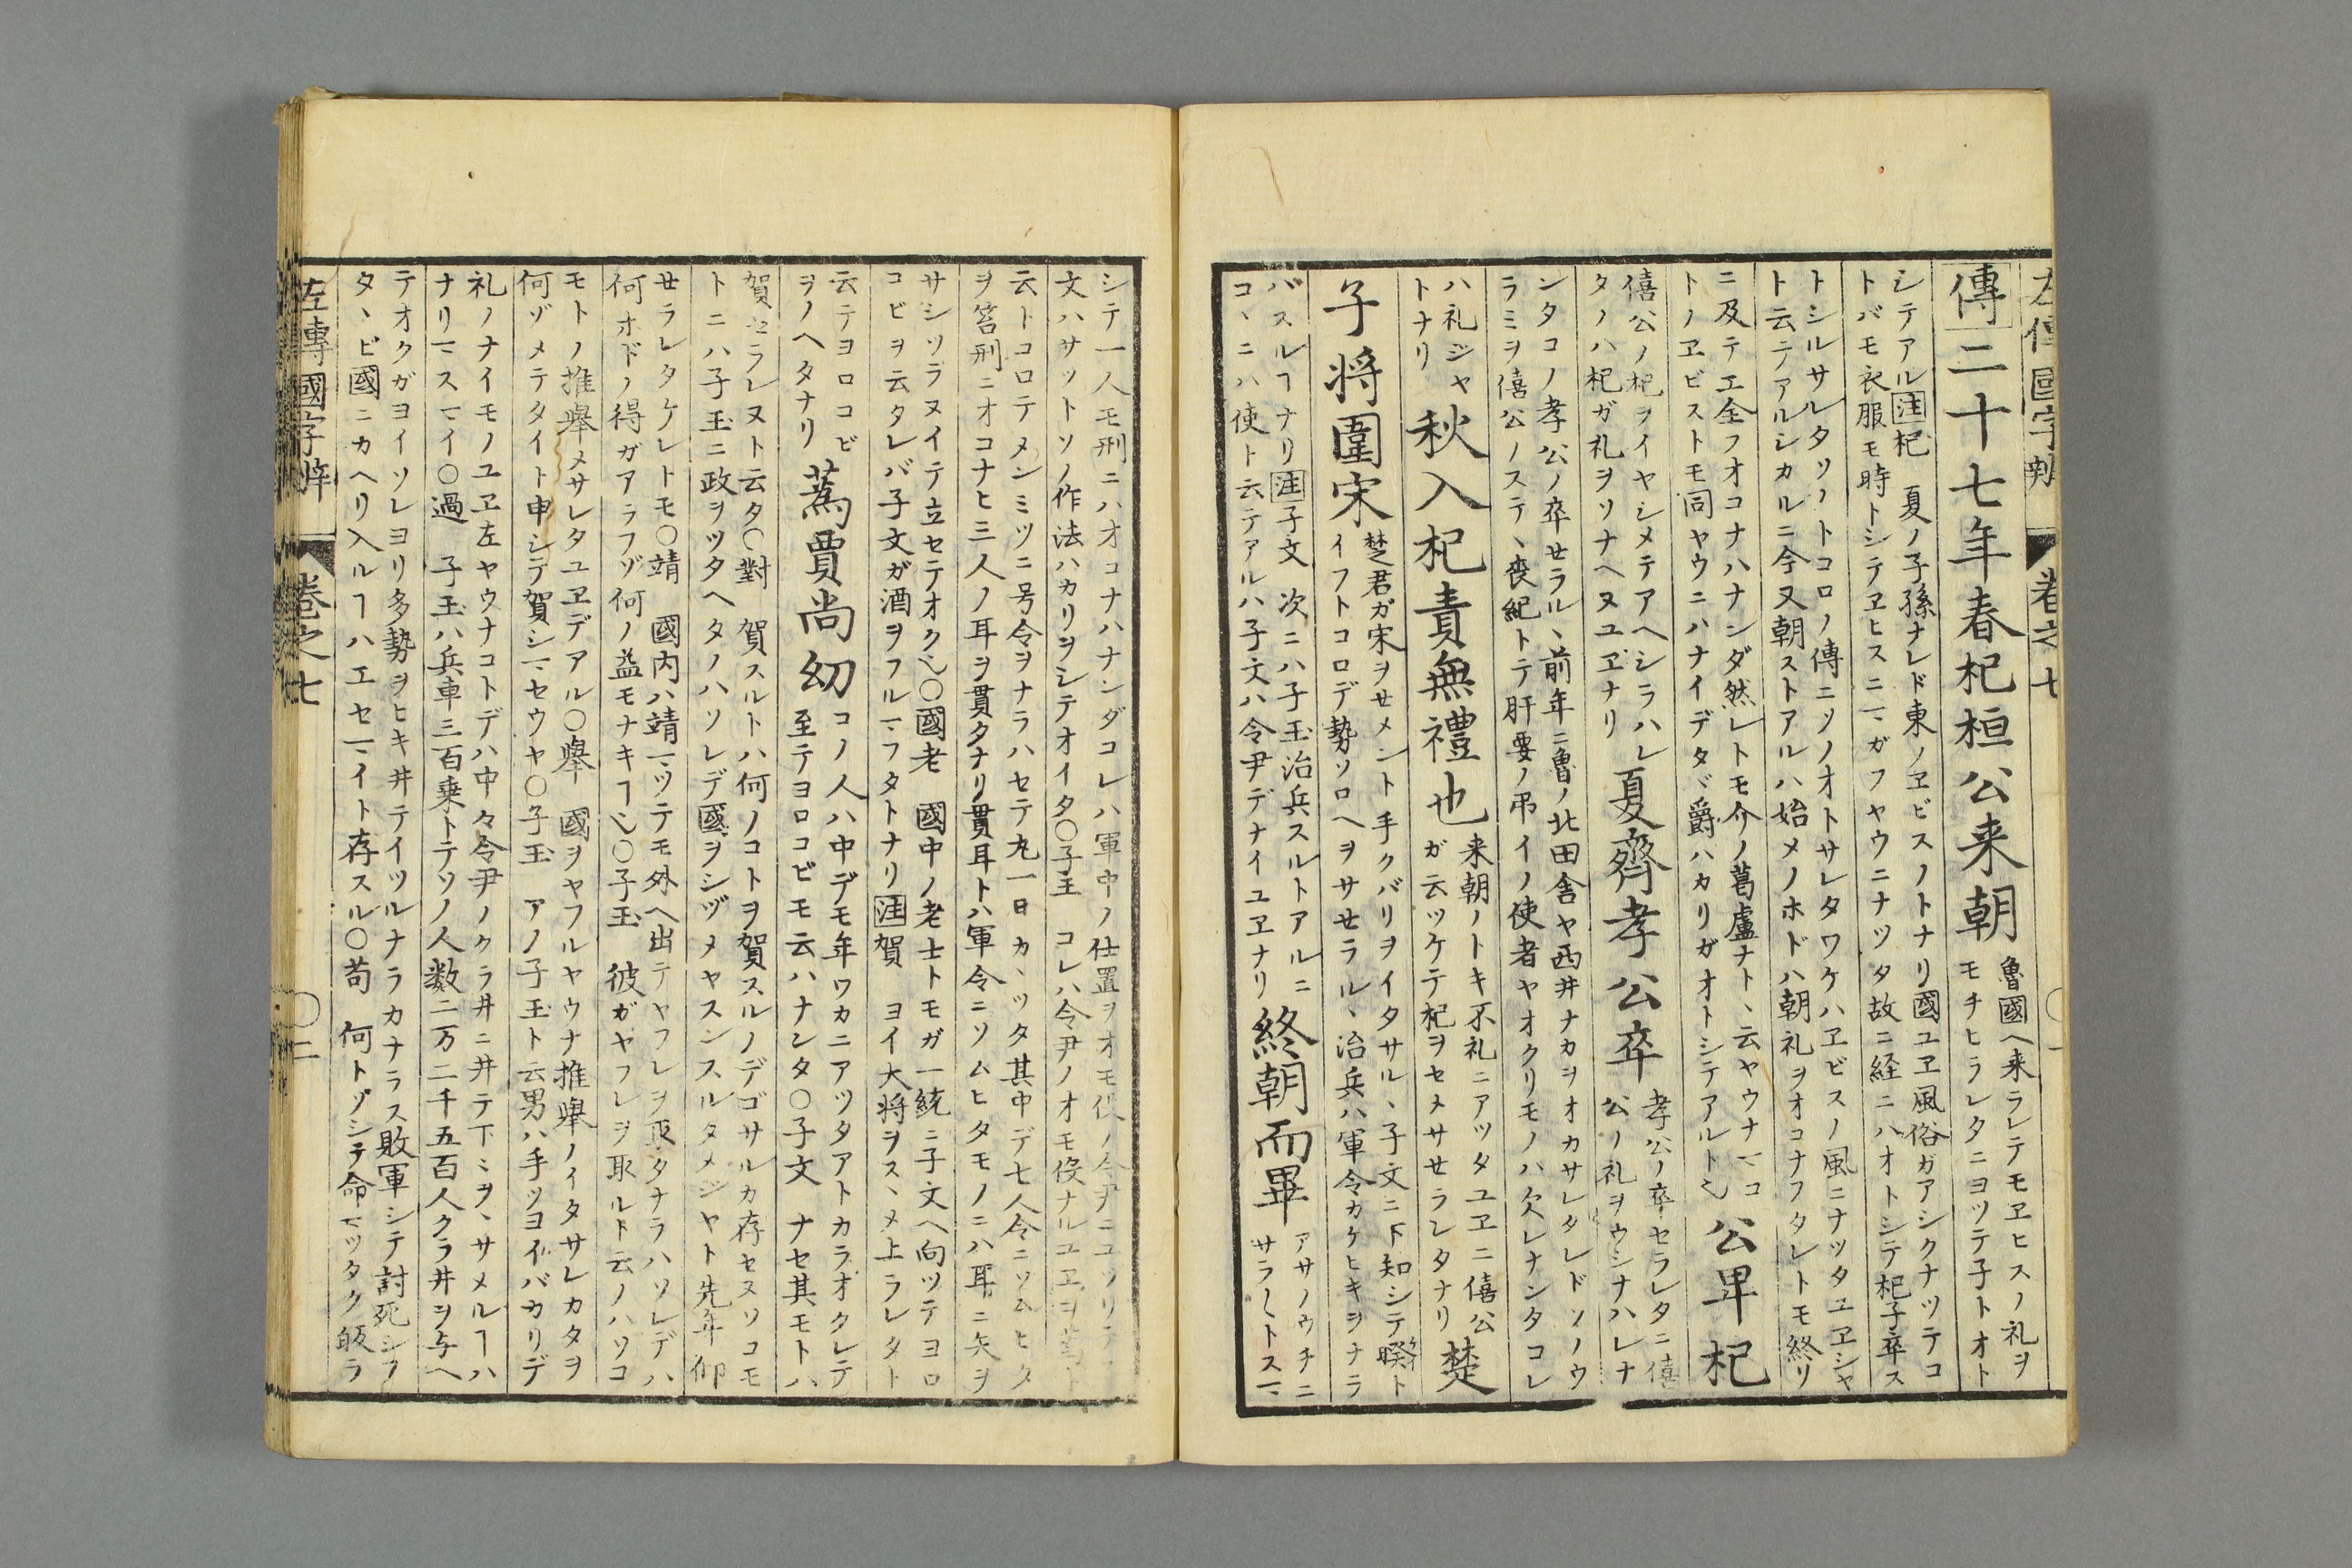 左傳國字辨 卷之七 ○一
傳二十七年春杞桓公来朝 魯國ヘ来ラレテモヱヒスノ礼ヲ
モチヒラレタニヨツテ子トオト
シテアル注杞 夏ノ子孫ナレド東ノヱビスノトナリ國ユヱ風俗ガアシクナツテコ
トバモ衣服モ時トシテヱヒスニマガフヤウニナツタ故ニ経ニハオトシテ杞子卒ス
トシルサルタソノトコロノ傳ニソノオトサレタワケハヱビスノ風ニナツタユヱシヤ
ト云テアルシカルニ今又朝ストアルハ始メノホドハ朝礼ヲオコナフタレトモ終リ
ニ及テヱ全フオコナハナンダ然レトモ介ノ葛盧ナト、云ヤウナマコ
トノヱビストモ同ヤウニハナイデタヾ爵ハカリガオトシテアルト也 公卑杞
僖公ノ杞ヲイヤシメテアヘシラハレ
タノハ杞ガ礼ヲソナヘヌユヱナリ 夏齊孝公卒 孝公ノ卒セラレタニ僖
公ノ礼ヲウシナハレナ
ンタコノ孝公ノ卒セラル、前年ニ魯ノ北田舎ヤ西井ナカヲオカサレタレドソノウ
ラミヲ僖公ノステ、喪紀トテ肝要ノ吊イノ使者ヤオクリモノハ欠レナンタコレ
ハ礼ジヤ
トナリ 秋入杞責無禮也 来朝ノトキ不礼ニアツタユヱニ僖公
ガ云ツケテ杞ヲセメサセラレタナリ 楚
子将圍宋 楚君ガ宋ヲセメント手クバリヲイタサル、子文ニ下知シテ睽ト
イフトコロデ勢ソロヘヲサセラル、治兵ハ軍令カケヒキヲナラ
バスルヿナリ注子文 次ニハ子玉治兵スルトアルニ
コ、ニハ使ト云テアルハ子文ハ令尹デナイユヱナリ 終朝而畢 アサノウチニ
サラ〳〵トスマ
シテ一人モ刑ニハオコナハナンダコレハ軍中ノ仕置ヲオモ
文ハサツトソノ作法ハカリヲシテオイタ○子玉 コレハ令尹ノオモ役ナルユヱヲ
云トコロテメンミツニ号令ヲナラハセテ丸一日カ、ツタ其中デ七人令ニソムヒタ
ヲ笞刑ニオコナヒ三人ノ耳ヲ貫タナリ貫耳トハ軍令ニソムヒタモノニハ耳ニ矢ヲ
サシソラヌイテ立セテオク也○國老 國中ノ老士トモガ一統ニ子文ヘ向ツテヨロ
コビヲ云タレバ子文ガ酒ヲフルマフタトナリ注賀 ヨイ大将ヲスヽメ上ラレタト
云テヨロコビ
ヲノヘタナリ 蔿賈尚幼 コノ人ハ中デモ年ワカニアツタアトカラオクレテ
至テヨロコビモ云ハナンタ○子文 ナセ其モトハ
賀セラレヌト云タ○對 賀スルトハ何ノコトヲ賀スルノデゴサルカ存セヌソコモ
トニハ子玉ニ政ヲツタヘタノハソレデ國ヲシヅメヤスンスルタメジヤト先年仰
セラレタケレトモ○靖 國内ハ靖マツテモ外ヘ出テヤフレヲ取タナラハソレデハ
何ホドノ得ガアラフゾ何ノ益モナキヿ也○子玉 彼ガヤフレヲ取ルト云ノハソコ
モトノ推舉メサレタユヱデアル○舉 國ヲヤフルヤウナ推舉ノイタサレカタヲ
何ゾメテタイト申シテ賀シマセウヤ○子玉 アノ子玉ト云男ハ手ツヨイバカリデ
礼ノナイモノユヱ左ヤウナコトデハ中々令尹ノクラ井ニ井テ下ミヲ、サメルヿハ
ナリマスマイ○過 子玉ハ兵車三百乗トテソノ人数二万二千五百人クラ井ヲ与ヘ
テオクガヨイソレヨリ多勢ヲヒキ井テイツルナラカナラス敗軍シテ討死シフ
タ、ビ國ニカヘリ入ルヿハヱセマイト存スル○苟 何トゾシテ命マツタク皈ラ
左傳國字辨 卷之七 ○二